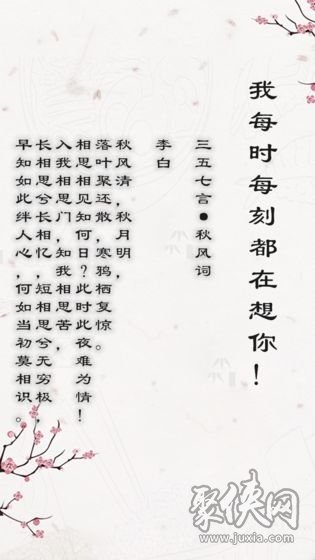 我每时每刻都在想你！
三五七言●秋风词
李白
秋风清，秋月明，
落叶聚还散，寒鸦栖复惊。
相思相见知何日？此时此夜难为情！
入我相思门，知我相思苦，
长相思兮长相忆，短相思兮无穷极，
早知如此绊人心，何如当初莫相识。
聚侠网
www.juxia.com